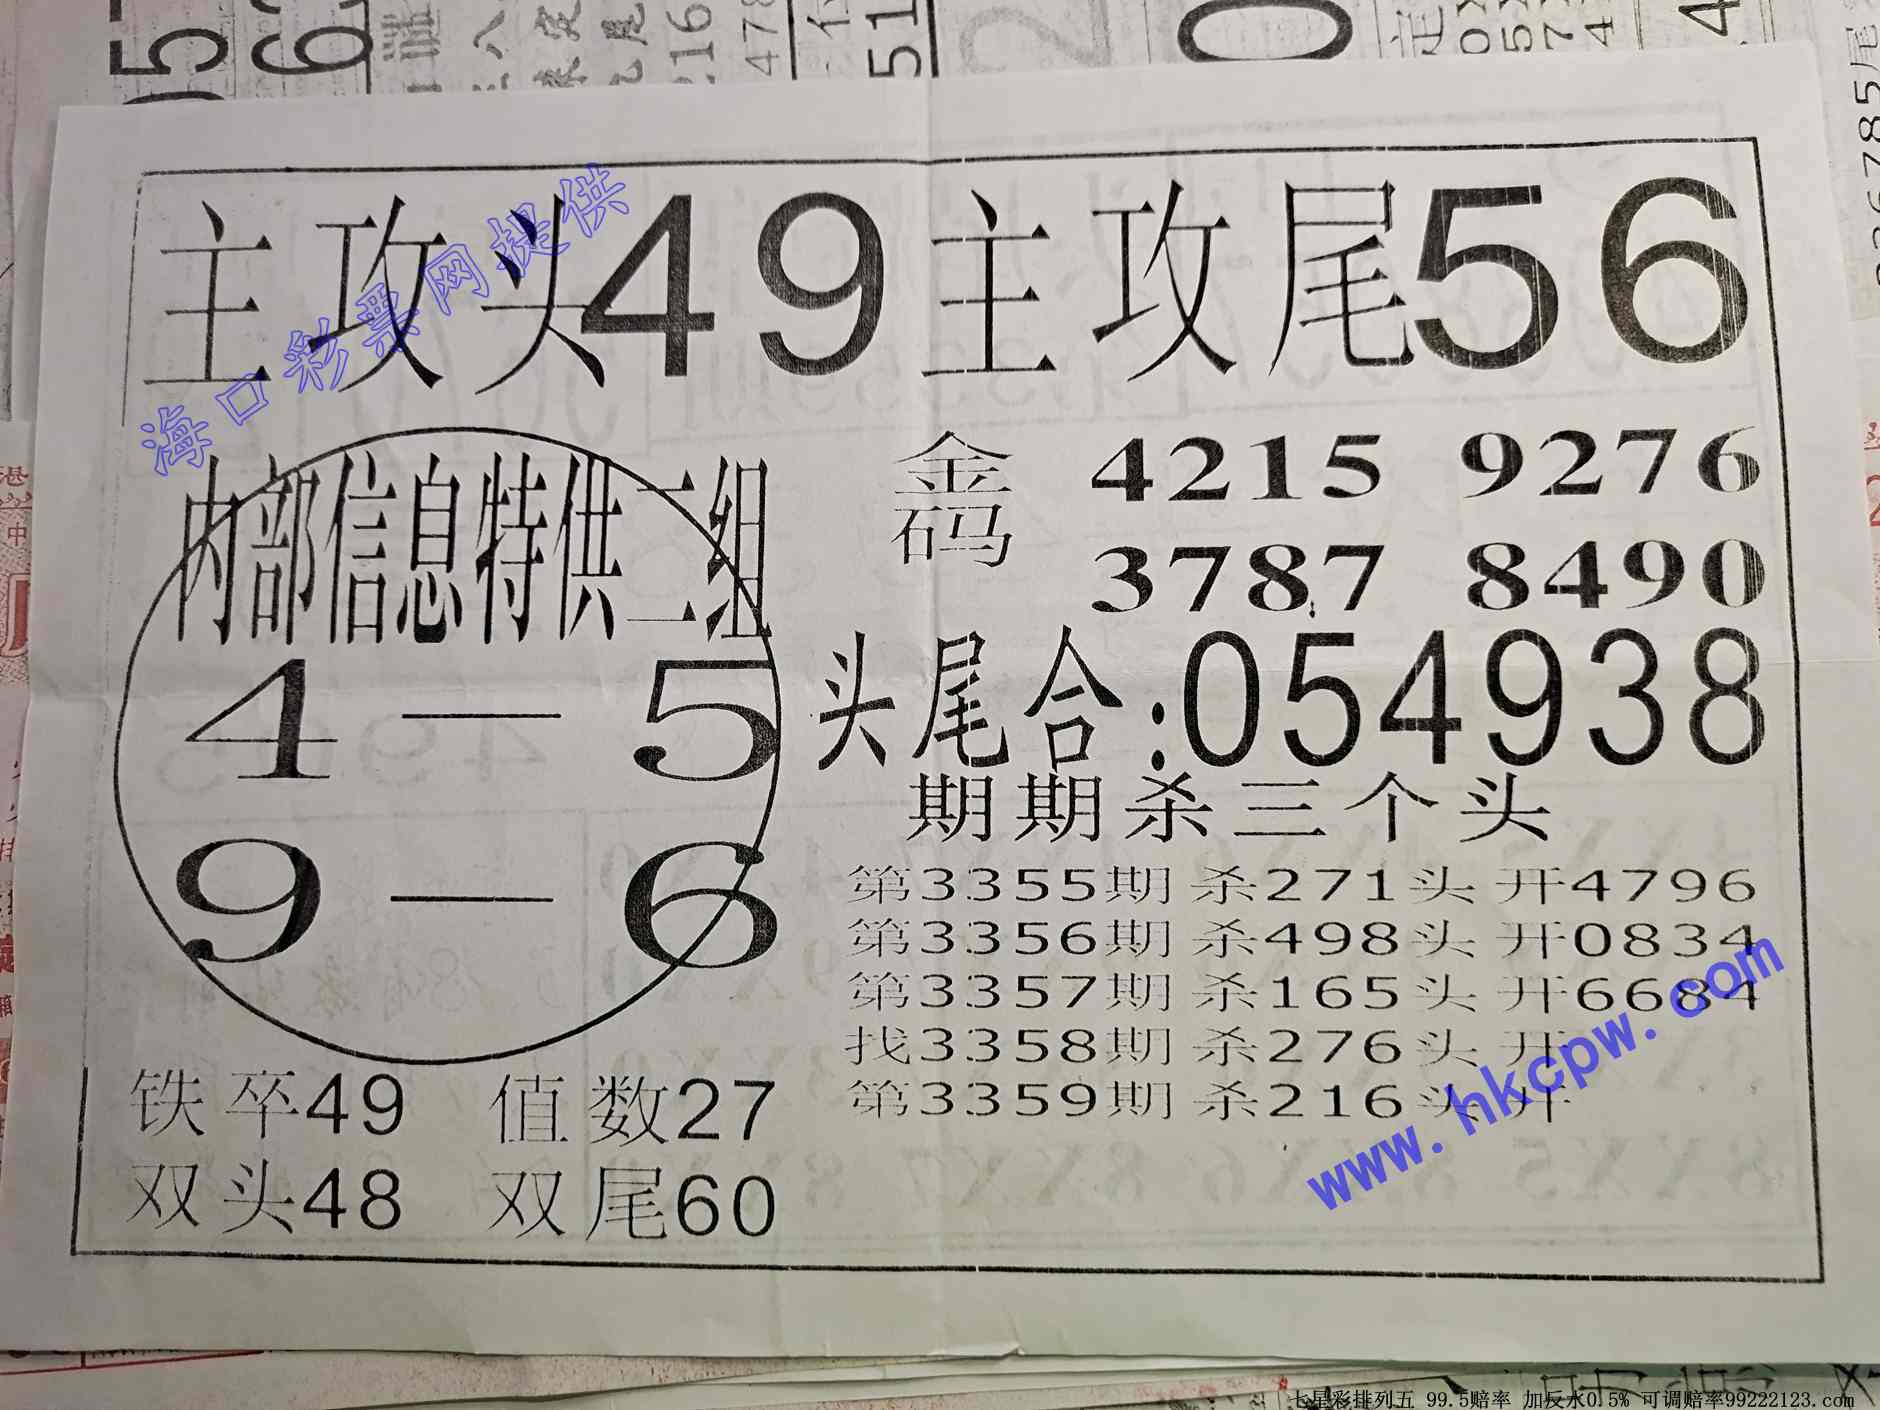 主攻头49 主攻尾56
海口彩票网提供
内部信息特供二组
4—5
9—6
金码 4215 9276
3787 8490
头尾合:054938
期期杀三个头
第3355期 杀271头 开4796
第3356期 杀498头 开0834
第3357期 杀165头 开6684
找3358期 杀276头 开
第3359期 杀216头 开
www.hkcpw.com
铁卒49 值数27
双头48 双尾60
七星彩排列五 99.5赔率 加反水0.5% 可调赔率99222123.com